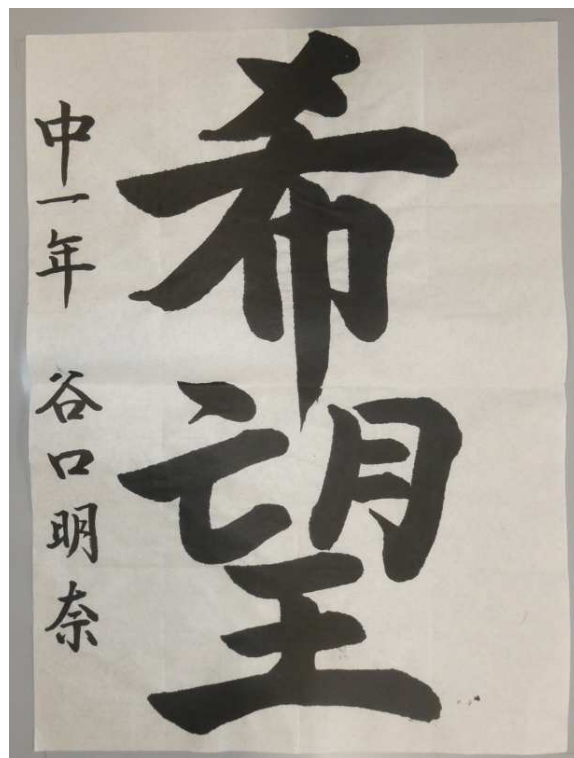 希望
中一年 谷口明奈